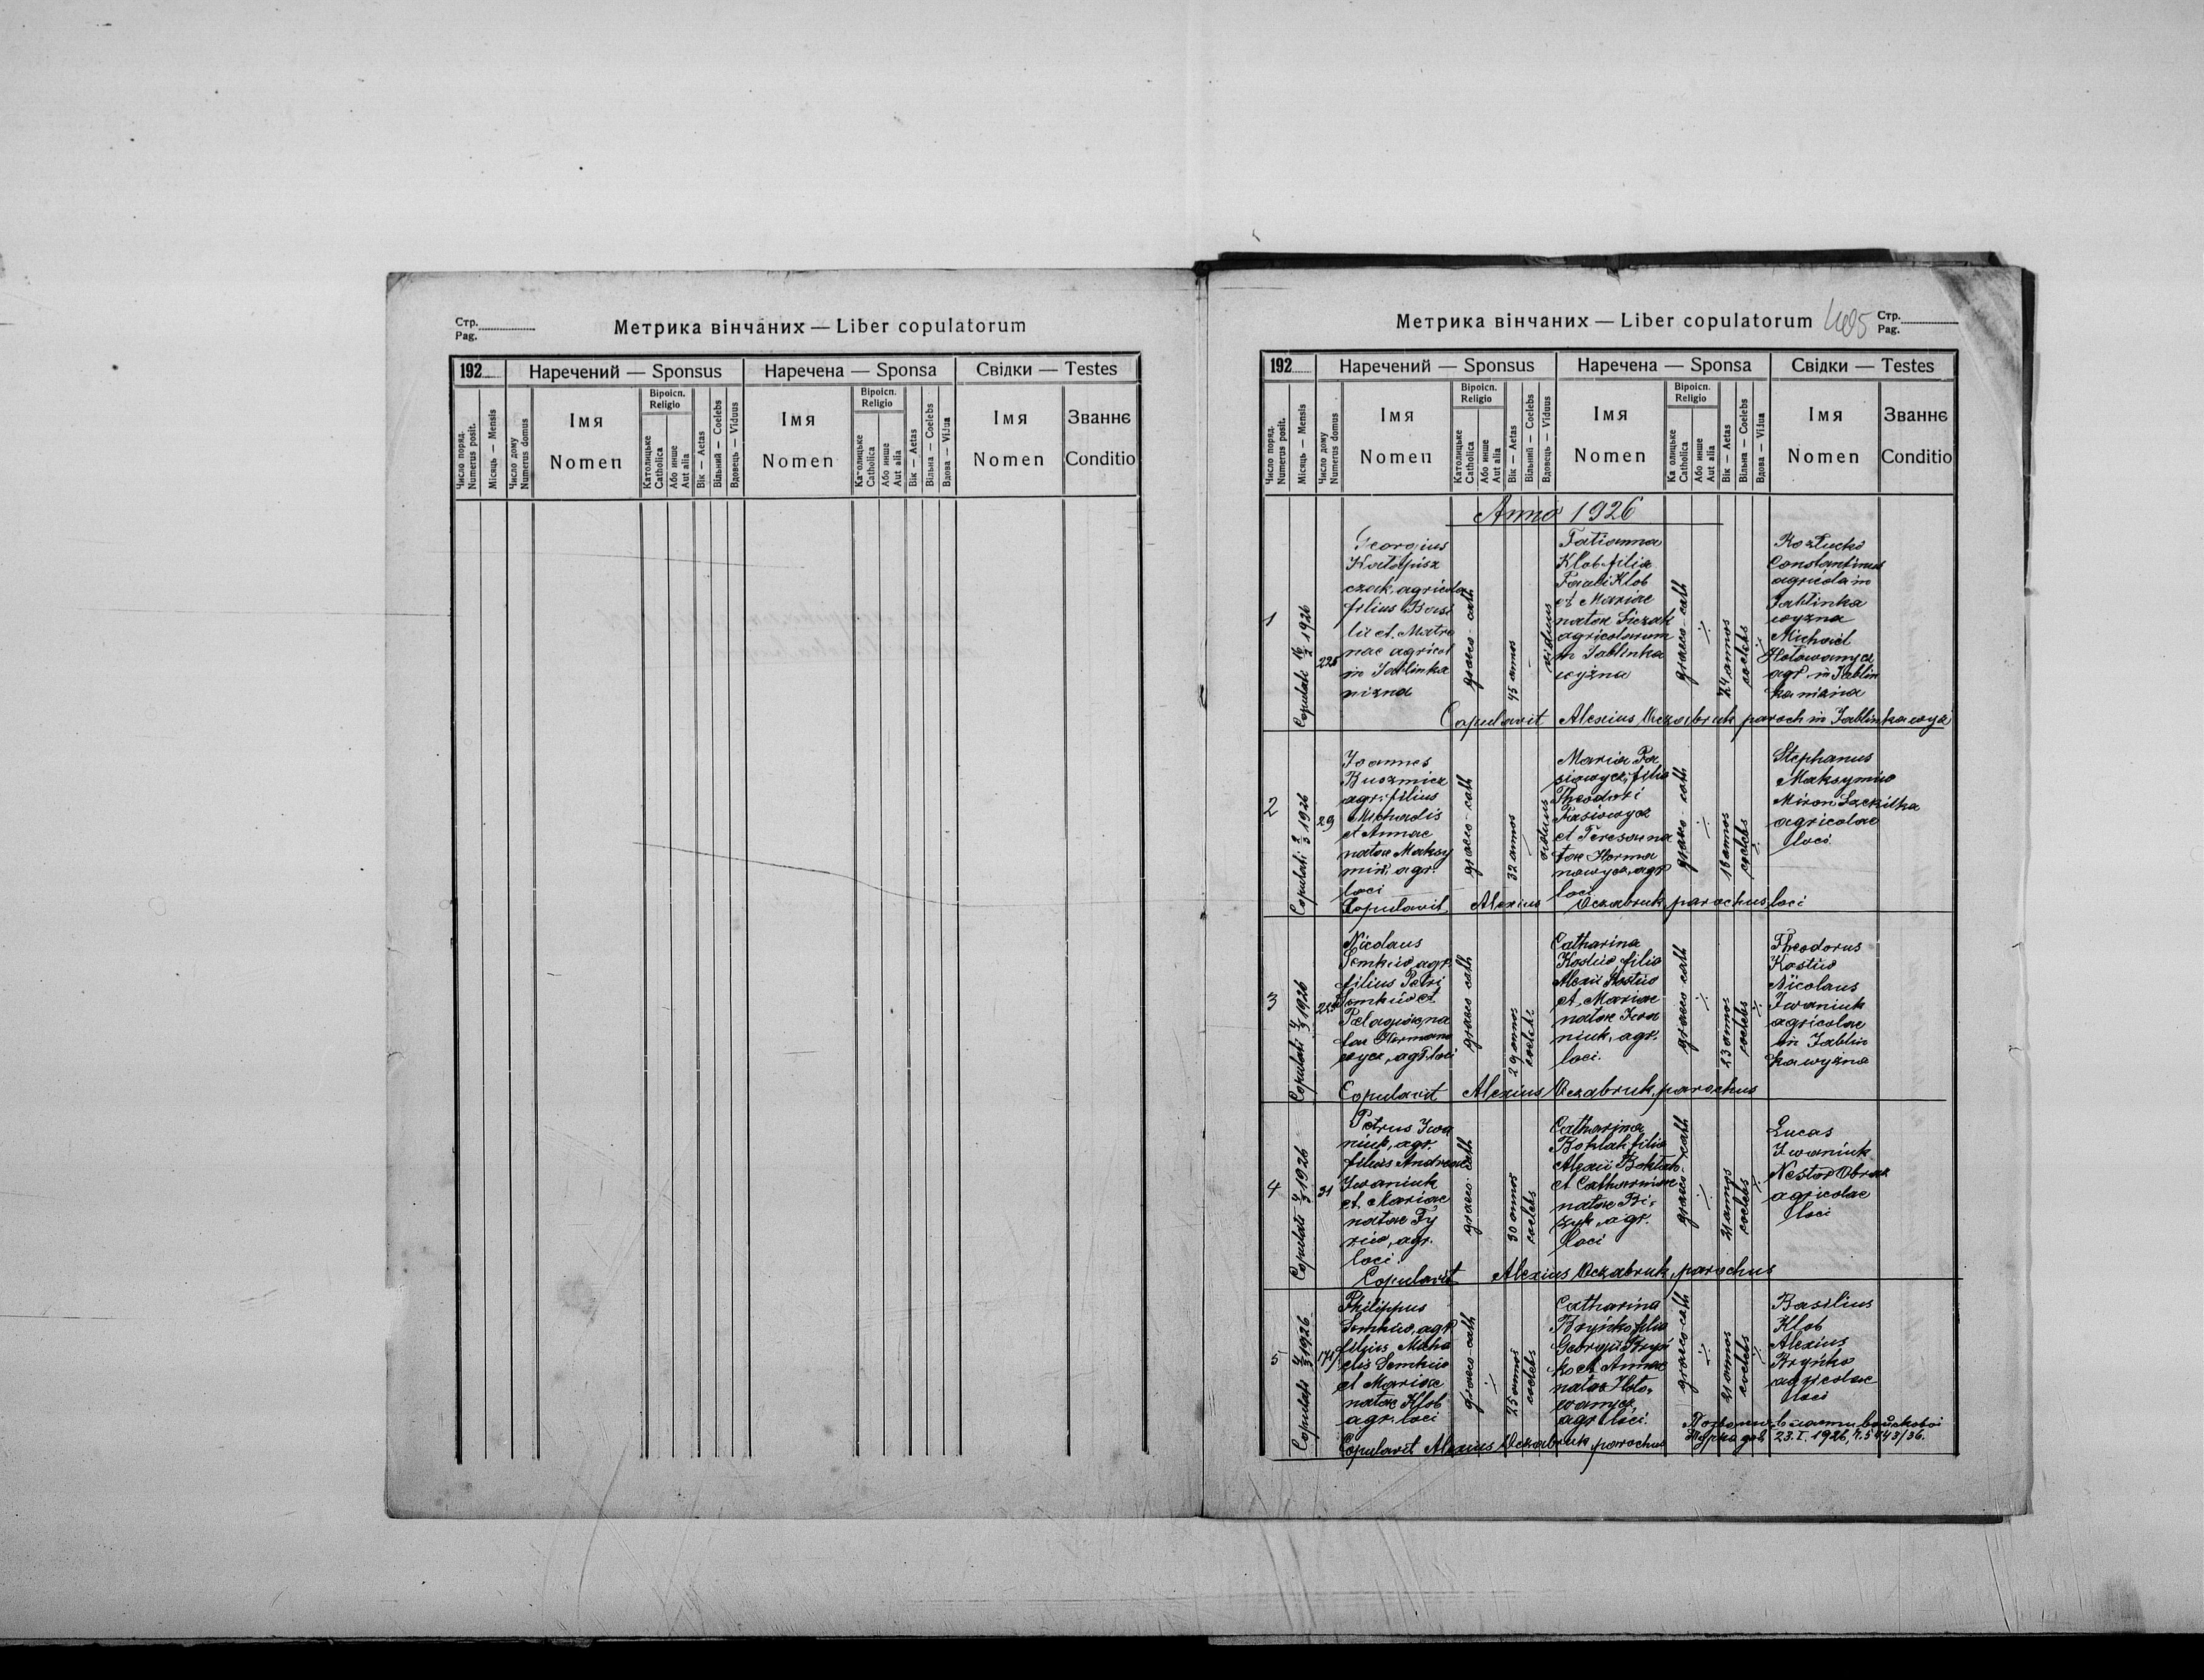 Стр.
Pag.
Метрика вінчаних — Liber copulatorum
192
Наречений — Sponsus
Наречена — Sponsa
Свідки — Testes
Число поряд.
Numerus posit.
Місяць — Mensis
Число дому
Numerus domus
Імя
Nomen
Віроісп.
Religio
Католицьке
Catholica
Або инше
Aut alia
Вік — Aetas
Вільний — Coelebs
Вдовець — Viduus
Імя
Nomen
Віроісп.
Religio
Католицьке
Catholica
Або инше
Aut alia
Вік — Aetas
Вільна — Coelebs
Вдова — Vidua
Імя
Nomen
Званнє
Conditio
Метрика вінчаних — Liber copulatorum 405
Стр.
Pag.
192
Наречений — Sponsus
Наречена — Sponsa
Свідки — Testes
Число поряд.
Numerus posit.
Місяць — Mensis
Число дому
Numerus domus
Імя
Nomen
Віроісп.
Religio
Католицьке
Catholica
Або инше
Aut alia
Вік — Aetas
Вільний — Coelebs
Вдовець — Viduus
Імя
Nomen
Віроісп.
Religio
Ка олицьке
Catholica
Або инше
Aut alia
Вік — Aetas
Вільна — Coelebs
Вдова — Vidua
Імя
Nomen
Званнє
Conditio
Anno 1926
1
Copulati 16/2 1926
225
Georgius
czak, agricola
filius Basi
lii et Matro
nae agricol
in Jablinka
nizna
graeco-cath
45 annos
viduus
Tatianna
Klob filia
Pauli Klob
et Mariae
natae
agricolarum
in Jablinka
wyżna
graeco-cath
24 annos
coelebs
Rozłucki
Constantinus
agricola in
Jablinka
wyzna
Michael
Hołowamycz
agr. in Jablin
ka nizna
Copulavit Alexius Oczabruk paroch in Jablinka wyż
2
Copulati 1926
29
Joannes
Buczmicz
agr. filius
Michaelis
et Annae
natae Maksy
miw, agr.
loci
graeco-cath
32 annos
viduus
Maria Ta
siowycz, filia
Theodori
Tasiowycz
et Teresae na
tae Herma
nowycz, agr
loci
graeco-cath
18 annos
coelebs
Stephanus
Maksymiw
Miron
agricolae
loci.
Copulavit Alexius Oczabruk parochus loci
3
Copulati 1926
Nicolaus
Semkiw agr.
filius Petri
Semkiw et
Pelagiae, na
tae Hermano
wycz, agr. loci
graeco cath
29 annos
coelebs
Catharina
Kostiw filia
Alexii Kostiw
et Mariae
natae Iwa
niuk, agr.
loci.
graeco cath
23 annos
coelebs
Theodorus
Kostiw
Nicolaus
Iwaniuk
agricolae
in Jablin
ka wyzna
Copulavit Alexius Oczabruk, parochus
4
Copulati 1926
31
Petrus Iwa
niuk, agr.
filius Andreae
Iwaniuk
et Mariae
natae Ty
riw, agr.
loci.
graeco-cath
30 annos
coelebs
Catharina
Bohlak filia
Alexii Bohlak
et Catharinae
natae Bi-
zyk, agr.
loci
graeco-cath
21 annos
coelebs
Lucas
Iwaniuk
Nestor
agricolae
loci
Copulavit Alexius Oczabruk, parochus
5
Copulati 1926
171
Philippus
Semkiw, agr
filius Micha
elis Semkiw
et Mariae
natae Klob
agr. loci
graeco-cath
25 annos
coelebs
Catharina
Bryńko filia
Georgii Bryń
ko et Annae
natae Hoło-
wamycz,
agr. loci.
graeco-cath
21 annos
coelebs
Basilius
Klob
Alexius
Bryńko
agricolae
loci
Copulavit Alexius Oczabruk parochus
23. I. 1926,